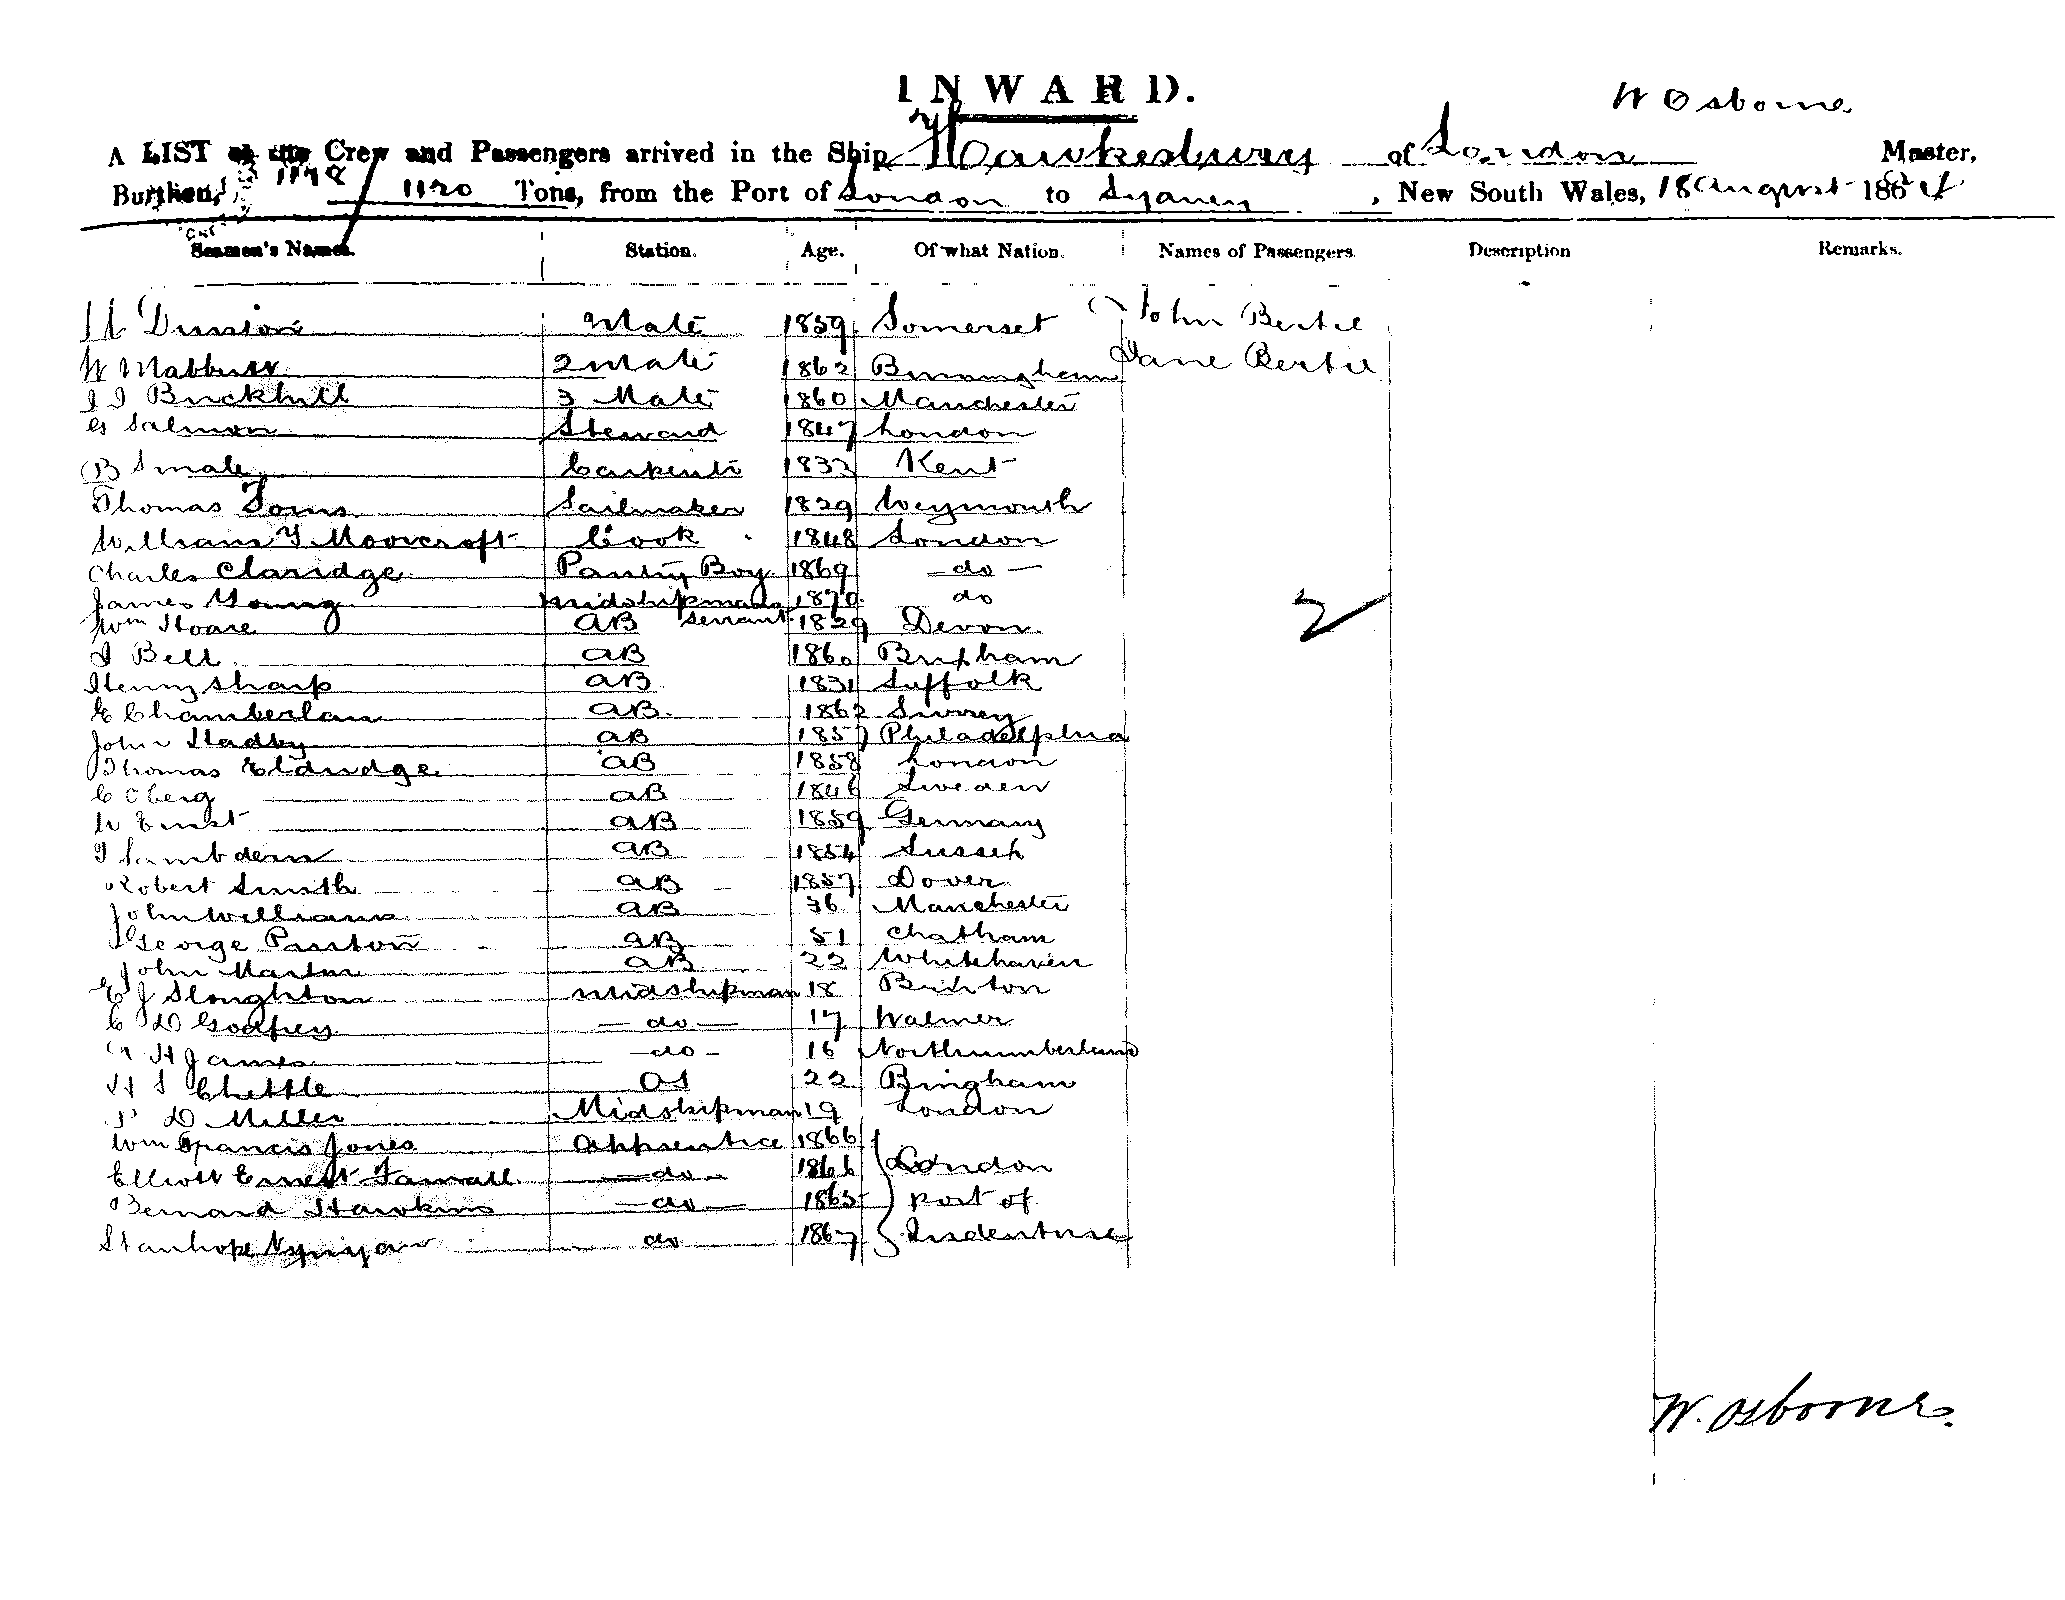 INWARD.
W Osborne
A LIST of the Crew and Passengers arrived in the Ship Hawkesbury of London Master,
Burthen, 1120 Tons, from the Port of London to Sydney, New South Wales, 18 August 188
Seamen's Names. Station. Age. Of what Nation. Names of Passengers. Description Remarks.
Mate 1859 Somerset John Bertie
W 2 Mate 1862 Birmingham Jane Bertie
Buckhill 3 Mate 1860 Manchester
G Salmon Steward 1847 London
B Smale Carpentr 1833 Kent
Thomas Toms Sailmaker 1829 Weymouth
William T Moorcroft Cook 1848 London
Charles Claridge Pantry Boy 1869 — do —
James Young Midshipmans 1870 do
Wm Hoare AB servant 1829 Devon
J Bell AB 1860 Brixham
Henry Sharp AB 1831 Suffolk
E Chamberlan AB 1862 Surrey
John AB 1857 Philadelphia
Thomas Eldridge AB 1858 London
C Oberg AB 1846 Sweden
W Ernst AB 1859 Germany
AB 1854 Sussex
Robert Smith AB 1857 Dover
John Williams AB 36 Manchester
George AB 51 Chatham
John Martin AB 22 Whitehaven
E J Sloughton Midshipman 18 Brixton
C D Godfrey — do — 17 Walmer
H James — do — 16 Northumberland
H S Chettle OS 22 Bingham
D Miller Midshipman 19 London
Wm Francis Jones Apprentice 1866
Elliott Ernest — do — 1866 London
Bernard Hawkins — do — 1865 port of
Stanhope do 1867 Indenture
2
W. Osborne.